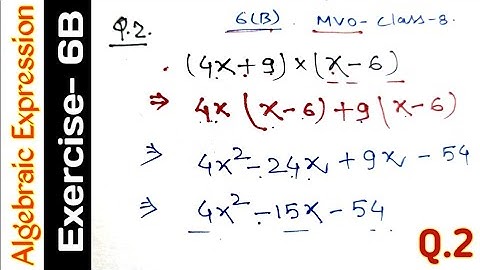 Algebraic Expression
Exercise- 6B
Q.2.
6(B) MVO- Class-8.
(4x+9)×(x-6)
⇒ 4x(x-6)+9(x-6)
⇒ 4x²-24x+9x-54
⇒ 4x²-15x-54
Q.2